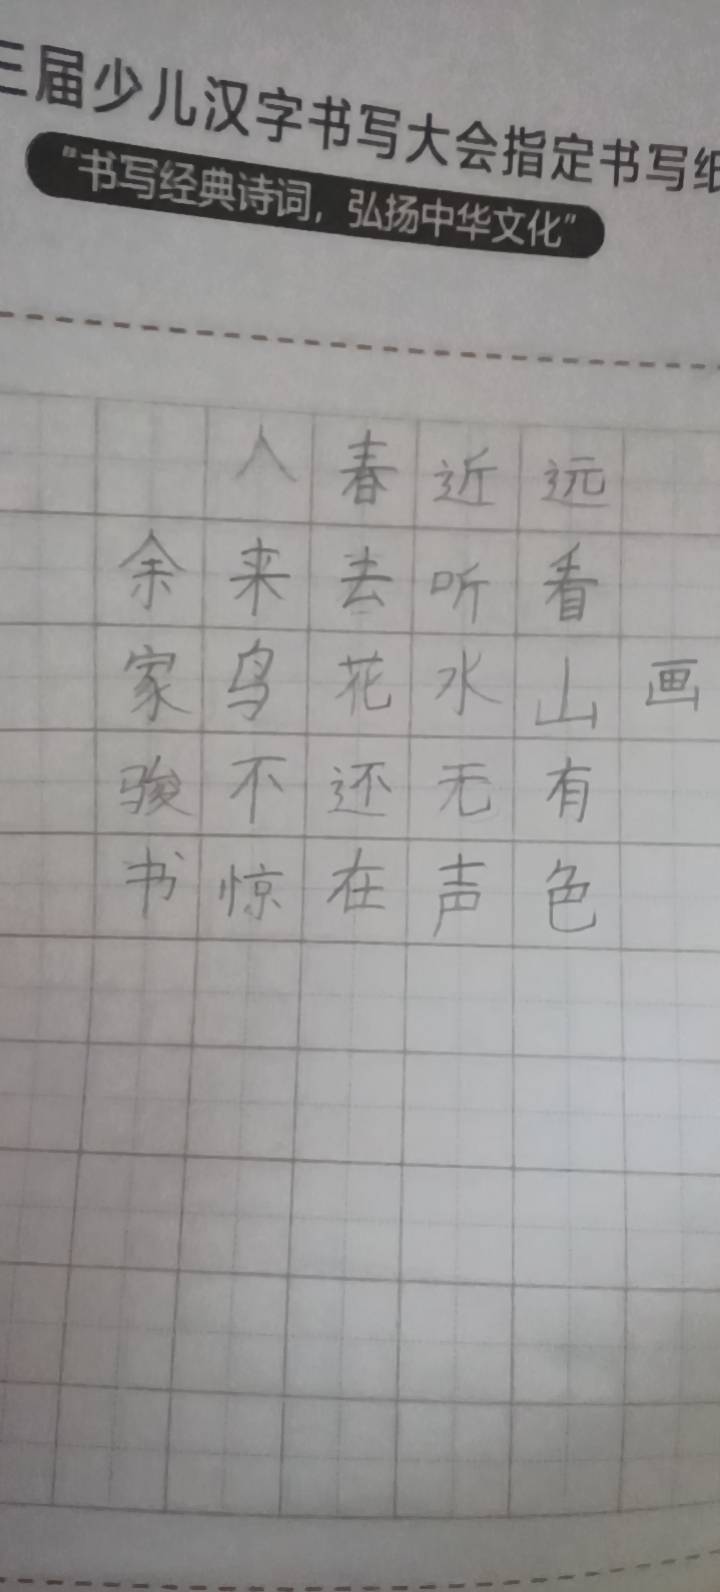 三届少儿汉字书写大会指定书写纸
“书写经典诗词，弘扬中华文化”
画
远看山有色
近听水无声
春去花还在
人来鸟不惊
余家骏书